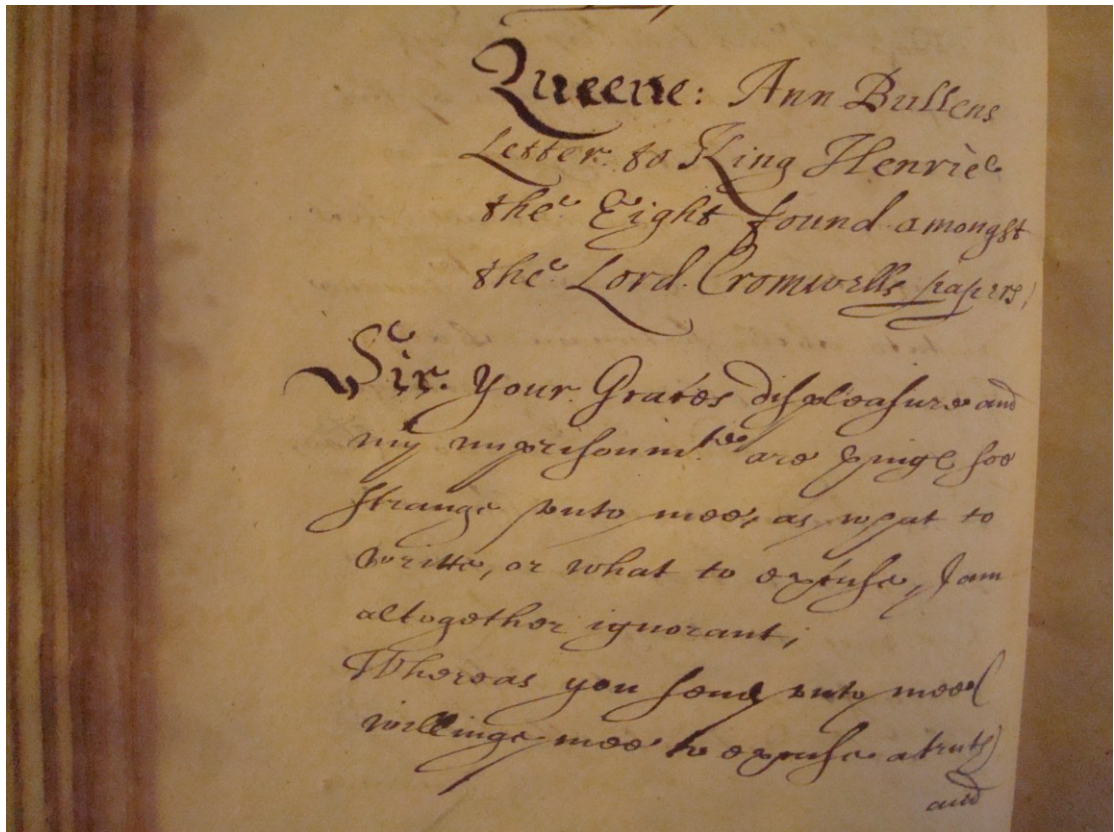 Queene: Ann Bullens
Letter to King Henrie
the Eight found amongst
the Lord Cromwells papers,
Sir. Your Graces displeasure and
my imprisonmte are things soe
strange unto mee, as what to
write, or what to excuse, I am
altogether ignorant;
Whereas you send unto mee
willinge mee to confesse a truth
and